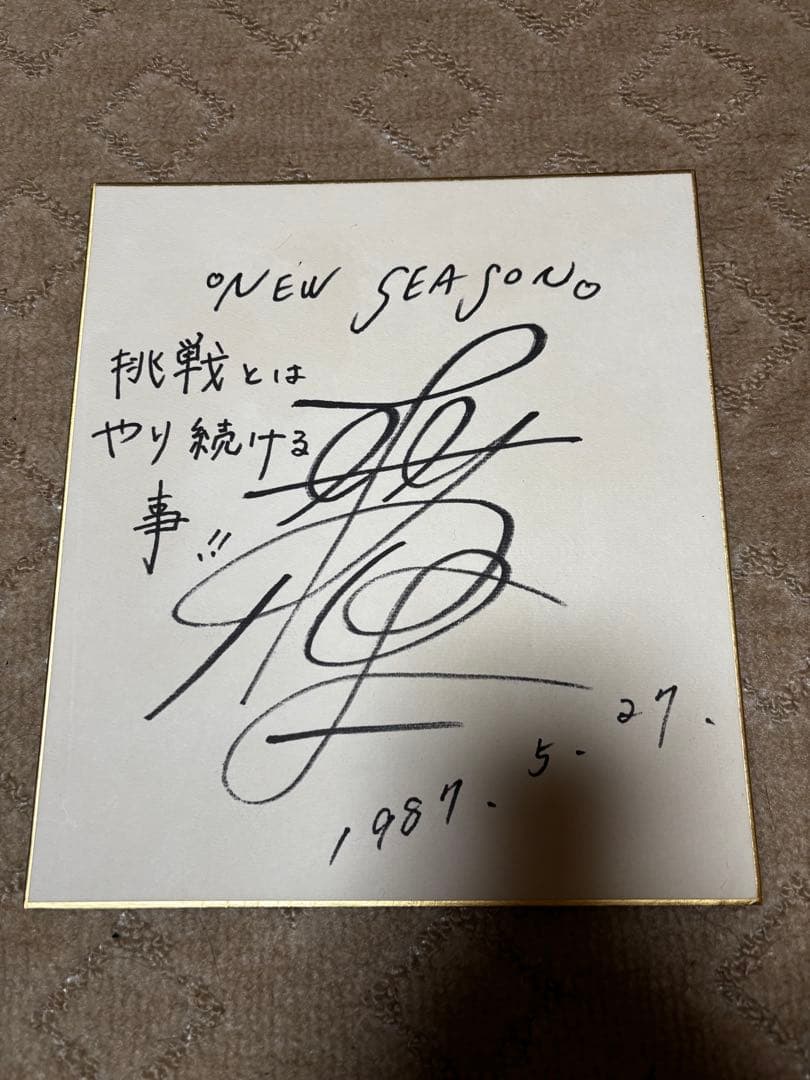 NEW SEASON
挑戦とは
やり続ける
事!!!
1987.5.27.